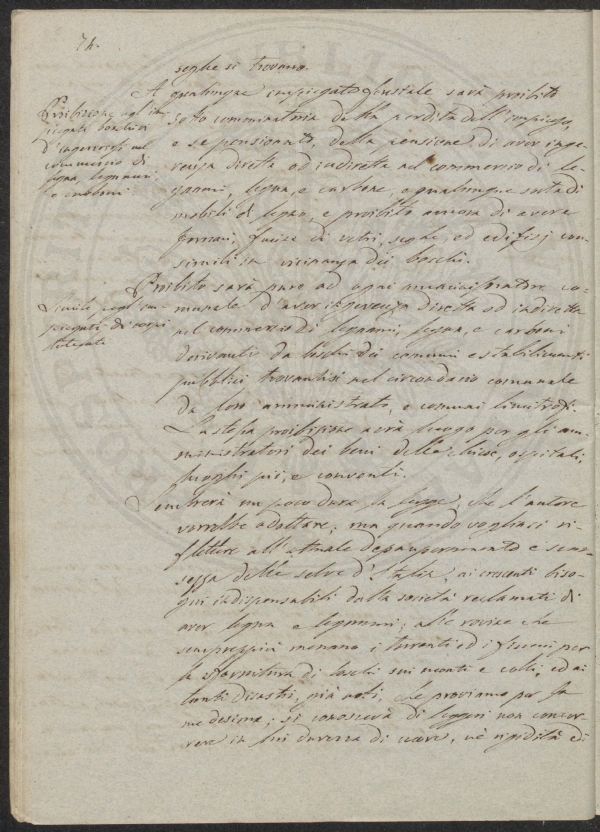 74.
seghe si trovano.
A qualunque impiegato forestale sarà proibito
sotto comminatoria della perdita dell'impiego,
e se pensionato, della pensione di aver inge-
renza diretta od indiretta nel commercio di le-
gnami, legna, e carbone, o qualunque sorta di
mobili di legno, e proibito ancora di avere
fornaci, fucine di vetri, seghe, ed edifizj con-
simili in vicinanza dei boschi.
Proibizione agli im-
piegati boschivi
d'ingerirsi nel
commercio di
legna, legnami
e carboni
Proibito sarà pure ad ogni amministratore co-
munale d'aver ingerenza diretta od indiretta
nel commercio di legnami, legna, e carboni
derivanti da boschi dei comuni e stabilimenti
pubblici trovantisi nel circondario comunale
da loro amministrato, e comuni limitrofi.
Simile agli im-
piegati di corpi
tutelati
La stessa proibizione avrà luogo per gli am-
ministratori dei beni delle chiese, ospitali,
luoghi pii, e conventi.
Sembrerà un poco dura la legge, che l'autore
vorrebbe adottare; ma quando vogliasi ri-
flettere all'attuale depauperamento e
delle selve d'Italia, ai crescenti biso-
gni indispensabili dalla società reclamati di
aver legna e legnami; alle rovine che
sempreppiù menano i torrenti ed i fiumi per
la sfornitura di boschi sui monti e colli, ed ai
tanti disastri, già noti, che proviamo per la
medesima; si conoscerà di leggeri non concor-
rere in lui durezza di cuore, nè rigidità di